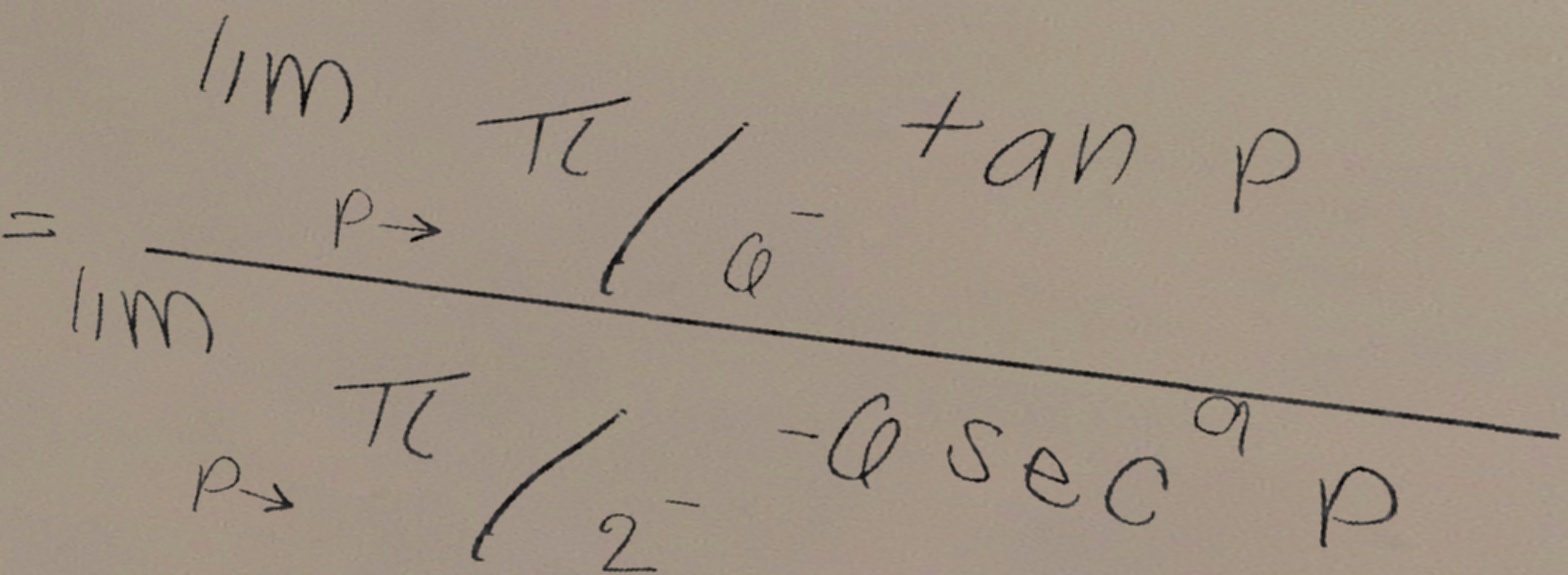 = \frac{\lim_{p \to \pi/6^-} \tan p}{\lim_{p \to \pi/2^-} -6 \sec^9 p}